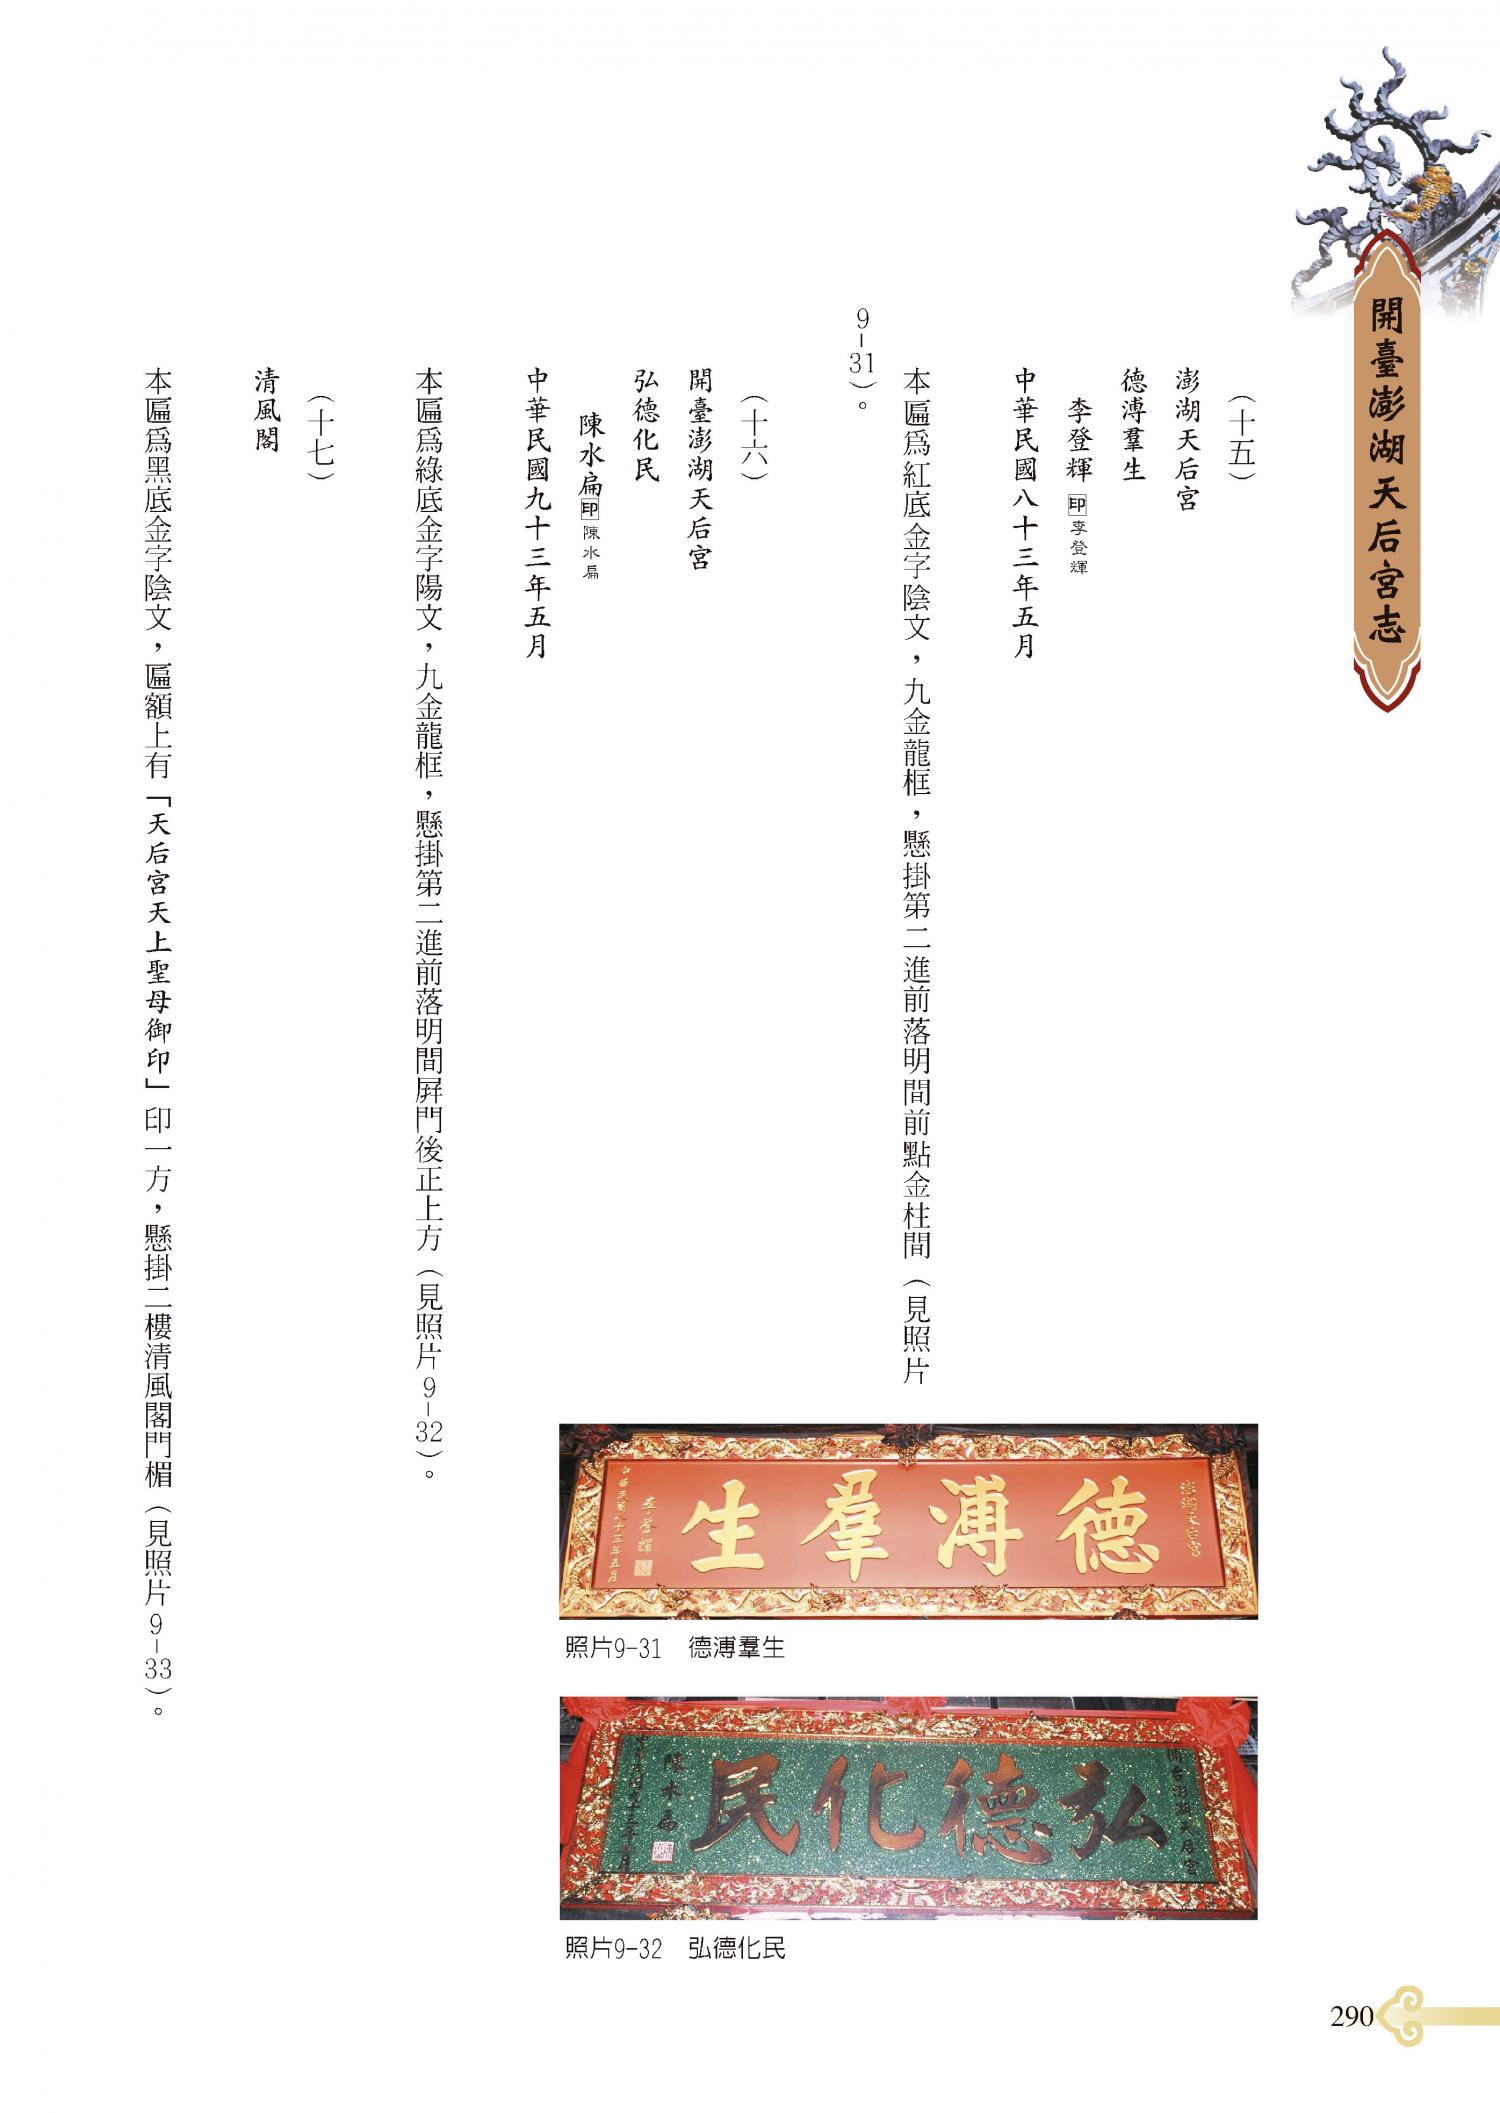 開臺澎湖天后宮志
（十五）
澎湖天后宮
德溥羣生
李登輝 印 李登輝
中華民國八十三年五月
本匾爲紅底金字陰文，九金龍框，懸掛第二進前落明間前點金柱間（見照片
9-31）。
（十六）
開臺澎湖天后宮
弘德化民
陳水扁 印 陳水扁
中華民國九十三年五月
本匾爲綠底金字陽文，九金龍框，懸掛第二進前落明間屛門後正上方（見照片9-32）。
（十七）
清風閣
本匾爲黑底金字陰文，匾額上有「天后宮天上聖母御印」印一方，懸掛二樓清風閣門楣（見照片9-33）。
澎湖天后宮
德溥羣生
李登輝
中華民國八十三年五月
照片9-31 德溥羣生
開台澎湖天后宮
弘德化民
陳水扁
中華民國九十三年五月
照片9-32 弘德化民
290